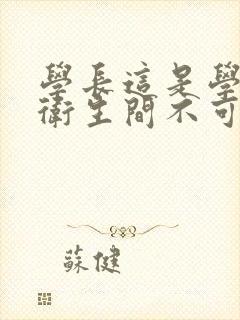 學長這是學
衛生間不可
蘇健